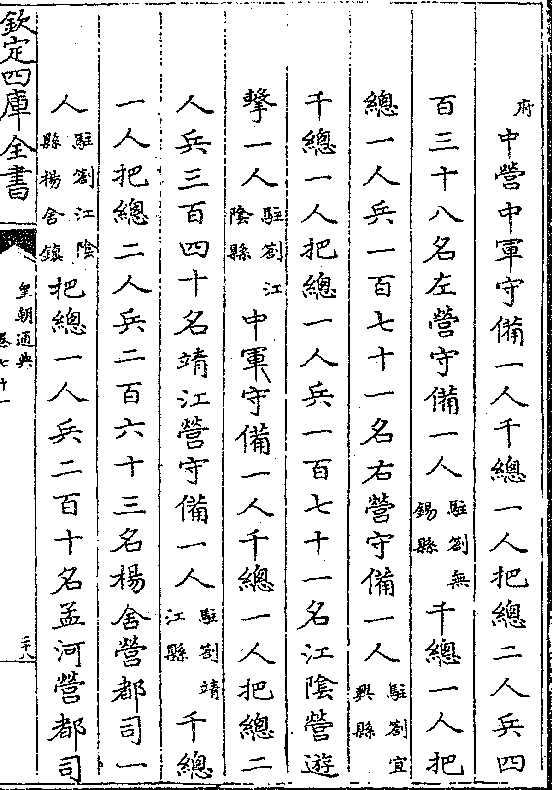 府中營中軍守備一人千總一人把總二人兵四
百三十八名左營守備一人駐劄無錫縣千總一人把
總一人兵一百七十一名右營守備一人駐劄宜興縣
千總一人把總一人兵一百七十一名江陰營遊
擊一人駐劄江陰縣中軍守備一人千總一人把總二
人兵三百四十名靖江營守備一人駐劄靖江縣千總
一人把總二人兵二百六十三名楊舍營都司一
人駐劄江陰縣楊舍鎮把總一人兵二百十名孟河營都司
欽定四庫全書
皇朝通典
卷七十一
二十八